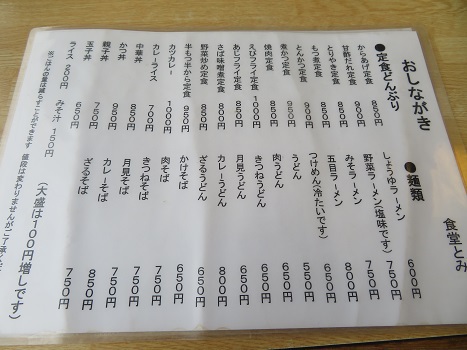 おしながき
●定食どんぶり
からあげ定食 850円
甘酢だれ定食 900円
とりやき定食 850円
もつ煮定食 850円
とんかつ定食 900円
煮かつ定食 950円
焼肉定食
えびフライ定食 1000円
あじフライ定食 850円
さば味噌煮定食 850円
野菜炒め定食 850円
半もつ半から定食 950円
カツカレー 1000円
カレーライス 700円
中華丼 850円
かつ丼 950円
親子丼 750円
玉子丼 650円
ライス 200円 みそ汁 150円
※ごはんの量は減らすことができます 値段は変わりませんがご了承ください
●麺類
しょうゆラーメン 600円
野菜ラーメン(塩味です) 750円
みそラーメン 750円
五目ラーメン 800円
つけめん(冷たいです) 650円
うどん 550円
肉うどん 650円
きつねうどん 650円
月見うどん 650円
カレーうどん 800円
ざるうどん 650円
かけそば 650円
肉そば 750円
きつねそば 750円
月見そば 750円
カレーそば 850円
ざるそば 750円
(大盛は100円増しです)
食堂とみ